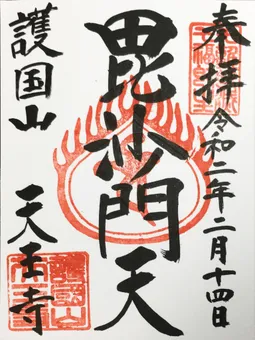 奉拝 令和二年二月十四日
毘沙門天
護国山 天王寺